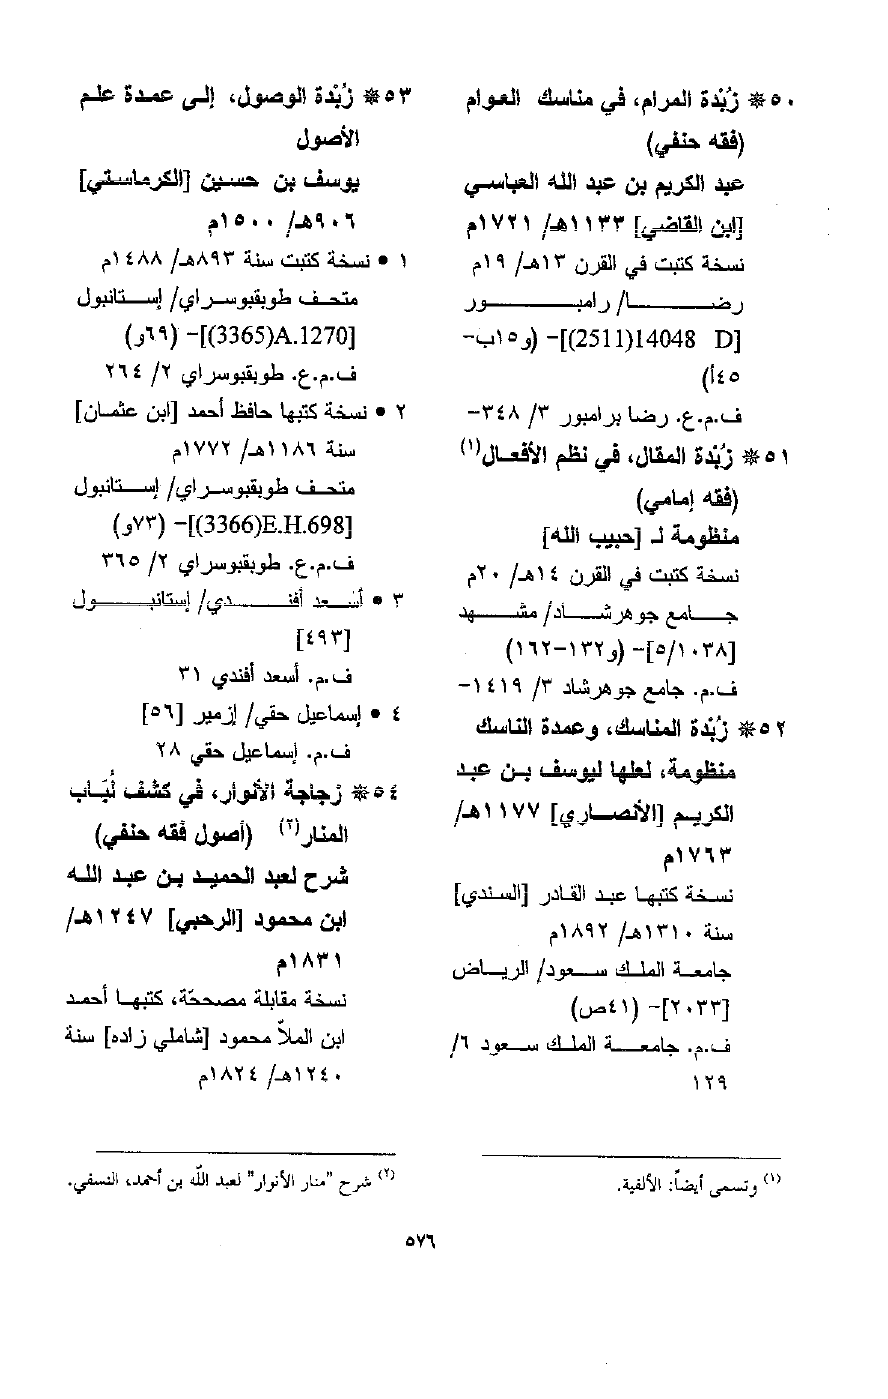 ٥٠ ❊ زُبْدة المرام، في مناسك العوام
(فقه حنفي)
عبد الكريم بن عبد الله العباسي
[ابن القاضي] ١١٣٣هـ/ ١٧٢١م
نسخة كتبت في القرن ١٣هـ/ ١٩م
رضـــــــا/ رامبـــــــور
[D 14048(2511)]- (و١٥ب-
٤٥أ)
ف.م.ع. رضا برامبور ٣/ ٣٤٨-
٥١ ❊ زُبْدة المقال، في نظم الأفعـال(١)
(فقه إمامي)
منظومة لـ [حبيب الله]
نسخة كتبت في القرن ١٤هـ/ ٢٠م
جـــامع جوهرشـــاد/ مشـــهد
[٥/١٠٣٨]- (و١٣٢-١٦٢)
ف.م. جامع جوهرشاد ٣/ ١٤١٩-
٥٢ ❊ زُبْدة المناسك، وعمدة الناسك
منظومة، لعلها ليوسف بن عبد
الكريم [الأنصاري] ١١٧٧هـ/
١٧٦٣م
نسخة كتبها عبد القادر [السندي]
سنة ١٣١٠هـ/ ١٨٩٢م
جامعة الملك سعود/ الرياض
[٢٠٣٣]- (٤١ص)
ف.م. جامعة الملك سعود ٦/
١٢٩
٥٣ ❊ زُبْدة الوصول، إلى عمدة علم
الأصول
يوسف بن حسين [الكرماستي]
٩٠٦هـ/ ١٥٠٠م
١ • نسخة كتبت سنة ٨٩٣هـ/ ١٤٨٨م
متحف طوبقبوسراي/ إستانبول
[A.1270(3365)]- (٦٩و)
ف.م.ع. طوبقبوسراي ٢/ ٢٦٤
٢ • نسخة كتبها حافظ أحمد [ابن عثمان]
سنة ١١٨٦هـ/ ١٧٧٢م
متحف طوبقبوسراي/ إستانبول
[E.H.698(3366)]- (٧٣و)
ف.م.ع. طوبقبوسراي ٢/ ٣٦٥
٣ • أسعد أفنـدي/ إستانبـول
[٤٩٣]
ف.م. أسعد أفندي ٣١
٤ • إسماعيل حقي/ إزمير [٥٦]
ف.م. إسماعيل حقي ٢٨
٥٤ ❊ زجاجة الأنوار، في كشف لُبَاب
المنار(٢) (أصول فقه حنفي)
شرح لعبد الحميد بن عبد الله
ابن محمود [الرحبي] ١٢٤٧هـ/
١٨٣١م
نسخة مقابلة مصححّة، كتبها أحمد
ابن الملاّ محمود [شاملي زاده] سنة
١٢٤٠هـ/ ١٨٢٤م
(١) وتسمى أيضاً: الألفية.
(٢) شرح "منار الأنوار" لعبد اللّه بن أحمد، النسفي.
٥٧٦